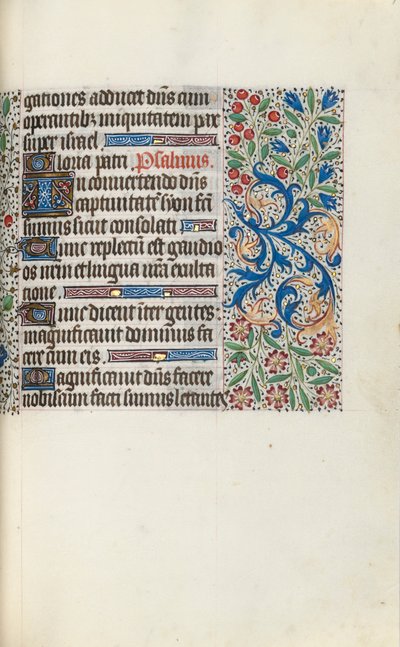 gationes adducet dn̄s cum
operantibꝫ iniquitatem pax
super israel.
Gloria patri Psalmus.
In convertendo dn̄s
captiuitatē syon fcī
sumus sicut consolati
Tunc repletū est gaudio
os nr̄m et lingua nr̄a exulta
tione.
Tunc dicent iter gentes:
magnificauit dominus fa
cere cum eis.
Magnificauit dn̄s facere
nobiscum facti sumus letantes